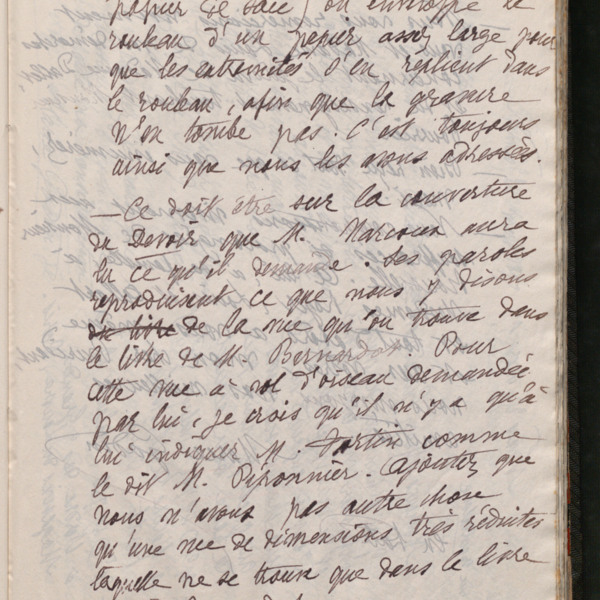 papier (de soie) on enveloppe le
rouleau d'un papier assez large pour
que les extremités s'en replient dans
le rouleau, afin que la gravure
n'en tombe pas. C'est toujours
ainsi que nous les avons adressées.
— Ce doit être sur la couverture
du Devoir que M. Marcoux aura
lu ce qu'il demande. Ses paroles
reproduisent ce que nous y disons
du livre de la vue qu'on trouve dans
le livre de M. Bernardot. Pour
cette vue à vol d'oiseau demandée
par lui, je crois qu'il n'y a qu'à
lui indiquer M. Fortin comme
le dit M. Piponnier. Ajoutez que
nous n'avons pas autre chose
qu'une vue de dimensions très réduites
laquelle ne se trouve que dans le livre